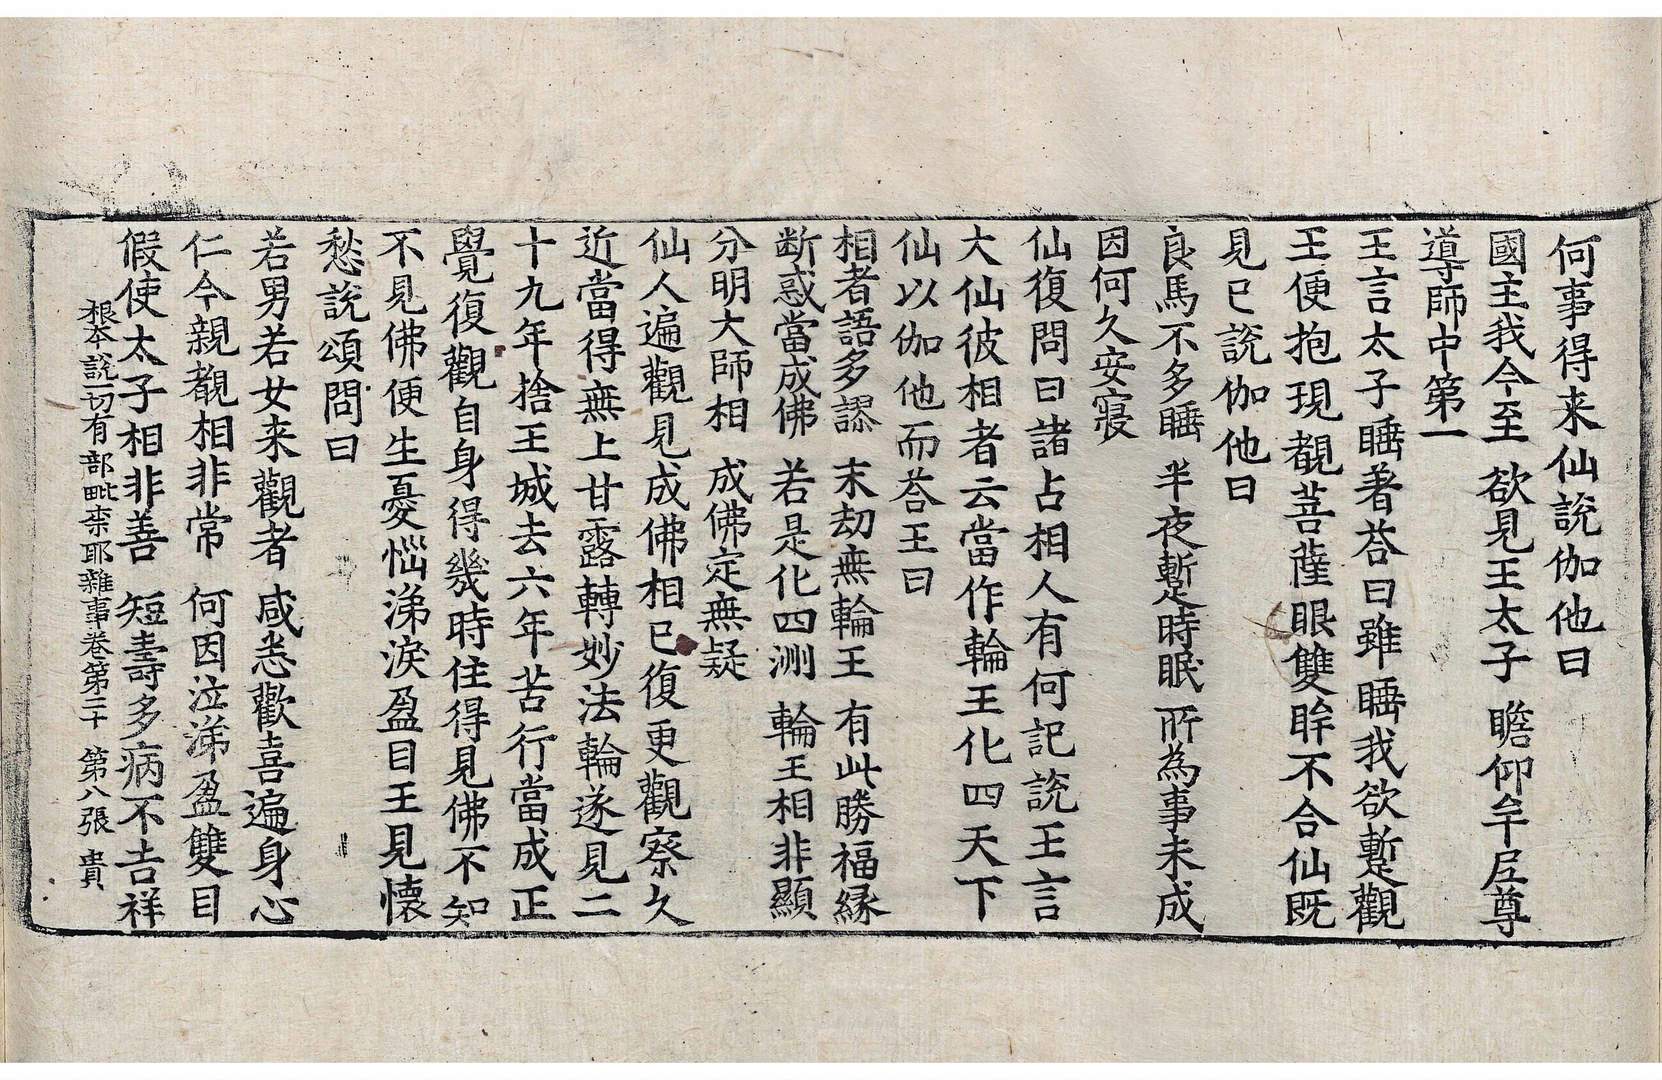 何事得来仙說伽他曰
國主我今至 欲見王太子 瞻仰牟尼尊
導師中第一
王言太子睡著荅曰雖睡我欲暫觀
王便抱現覩菩薩眼雙眸不合仙既
見已說伽他曰
良馬不多睡 半夜暫時眠 所為事未成
因何久安寢
仙復問曰諸占相人有何記說王言
大仙彼相者云當作輪王化四天下
仙以伽他而荅王曰
相者語多謬 末劫無輪王 有此勝福緣
断惑當成佛 若是化四洲 輪王相非顯
分明大師相 成佛定無疑
仙人遍觀見成佛相已復更觀察久
近當得無上甘露轉妙法輪遂見二
十九年捨王城去六年苦行當成正
覺復觀自身得幾時住得見佛不知
不見佛便生憂惱涕淚盈目王見懐
愁說頌問曰
若男若女来觀者 咸悉歡喜遍身心
仁今親覩相非常 何因泣涕盈雙目
假使太子相非善 短壽多病不吉祥
根本說一切有部毗柰耶雜事卷第二十 第八張 貴